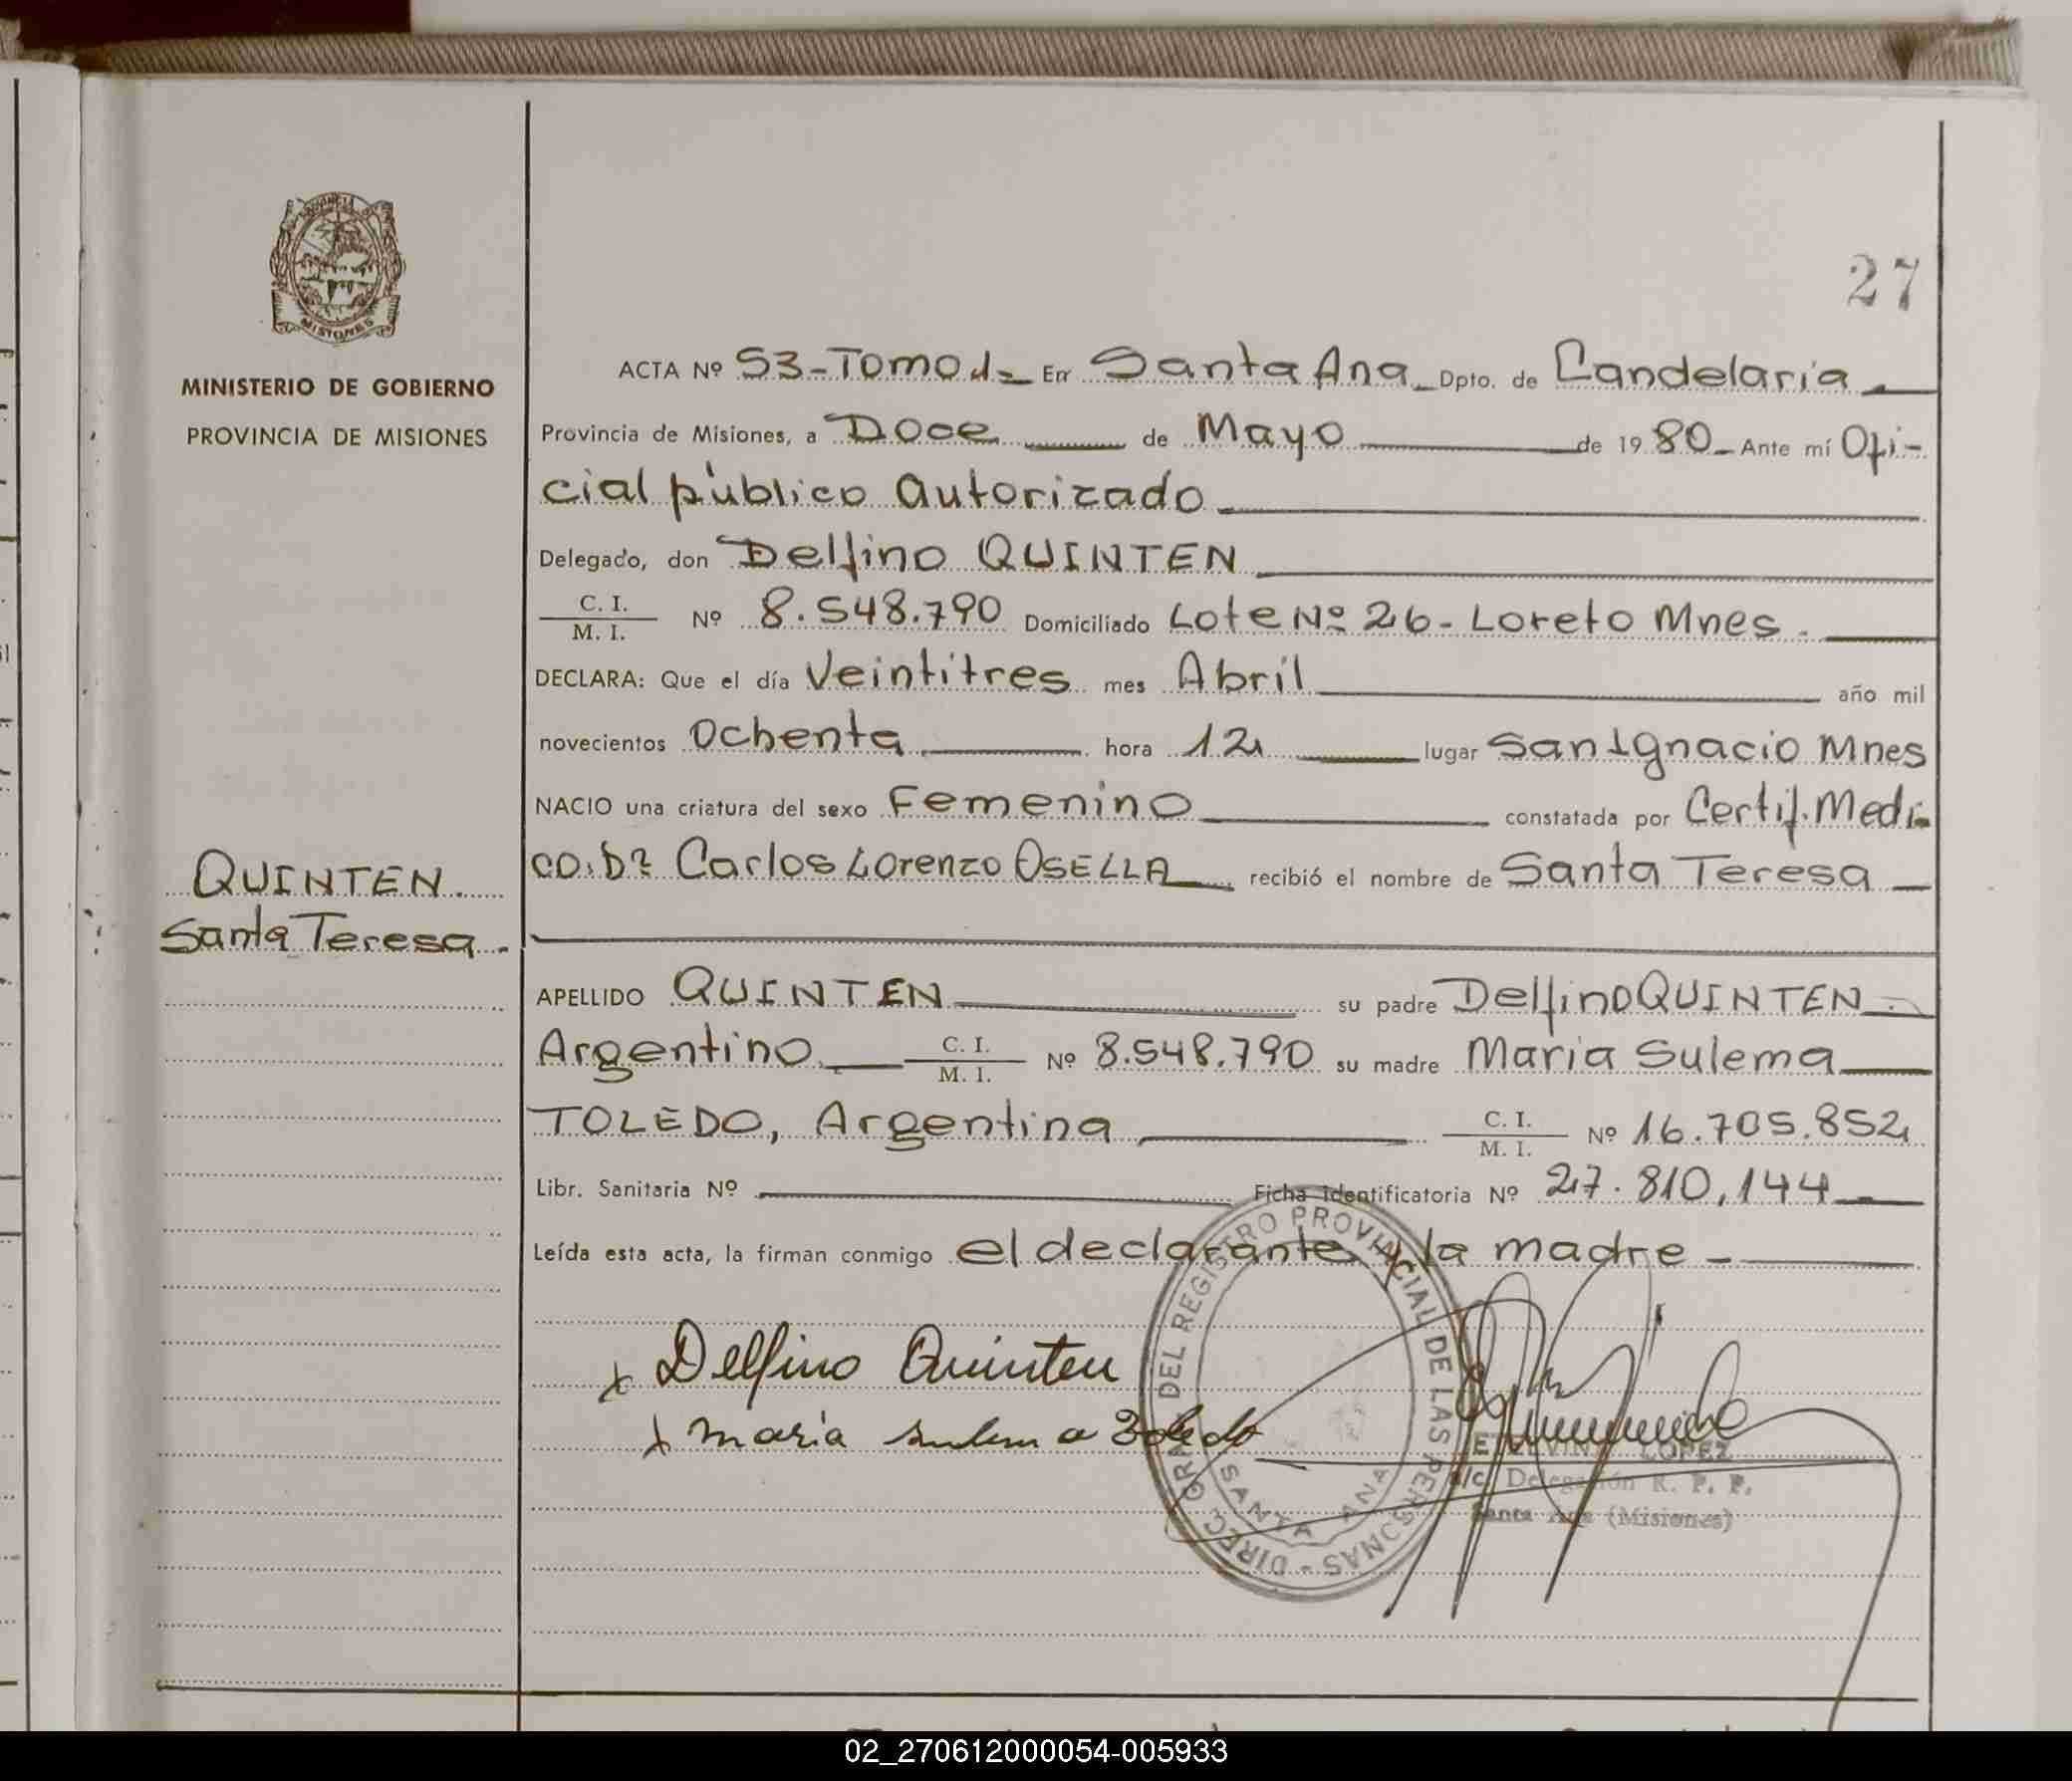 27
MINISTERIO DE GOBIERNO
PROVINCIA DE MISIONES
MISIONES
ACTA Nº 53-Tomo 1- En Santa Ana Dpto. de Candelaria
Provincia de Misiones, a Doce de Mayo de 1980 Ante mí Ofi-
cial público autorizado
Delegado, don Delfino QUINTEN
C. I.
M. I. Nº 8.548.790 Domiciliado Lote Nº 26- Loreto Mnes.
DECLARA: Que el día Veintitres mes Abril año mil
novecientos ochenta hora 12 lugar San Ignacio Mnes
NACIO una criatura del sexo Femenino constatada por Certif. Medi-
co. Dr Carlos Lorenzo OSELLA recibió el nombre de Santa Teresa
QUINTEN.
Santa Teresa.
APELLIDO QUINTEN su padre Delfino QUINTEN
Argentino C. I.
M. I. Nº 8.548.790 su madre Maria Sulema
TOLEDO, Argentina C. I.
M. I. Nº 16.705.852
Libr. Sanitaria Nº Ficha identificatoria Nº 27.810,144
Leída esta acta, la firman conmigo el declarante y la madre
x Delfino Quinten
x maria sulema Toledo
DIRECC GRAL DEL REGISTRO PROVINCIAL DE LAS PERSONAS - SANTA ANA
LOPEZ
a/c Delegación R. P. P.
Santa Ana (Misiones)
02_270612000054-005933